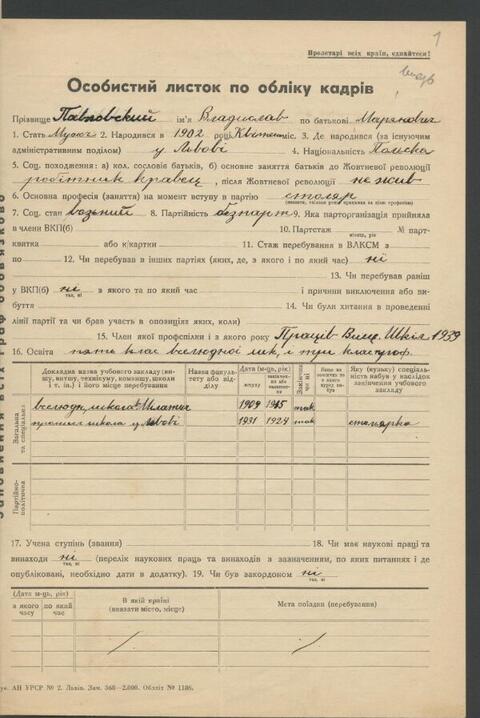 1
Пролетарі всіх країн, єднайтеся!
Особистий листок по обліку кадрів
Прізвище Павловский ім'я Владислав по батькові Марянович
1. Стать Муж 2. Народився в 1902 році Квітень міс. 3. Де народився (за існуючим
адміністративним поділом) у Львові 4. Національність Полска
5. Соц. походження: а) кол. сословів батьків, б) основне заняття батьків до Жовтневої революції
робітник кравец, після Жовтневої революції не жив
6. Основна професія (заняття) на момент вступу в партію столяр
7. Соц. стан возьний 8. Партійність безпарт 9. Яка парторганізація прийняла
в члени ВКП(б) 10. Партстаж № парт-
місяць, рік
квитка або к/картки 11. Стаж перебування в ВЛКСМ з
по 12. Чи перебував в інших партіях (яких, де, з якого і по який час) ні
13. Чи перебував раніш
у ВКП(б) ні з якого та по який час і причини виключення або ви-
так, ні
буття 14. Чи були хитання в проведенні
лінії партії та чи брав участь в опозиціях яких, коли)
15. Член якої профспілки і з якого року Праців. Вищ. Шкіл 1939
16. Освіта пять клас вселюдної шк. і три клас проф.
Докладна назва учбового закладу (ви-
шу, втишу, технікуму, комвишу, школи
і т. ін.) і його місце перебування
Назва факуль-
тету або від-
ділу
Дата (м-ць, рік)
вступу
закінчен-
ня або
Закінчив
чи ні
Яку (вузьку) спеціаль-
ність набув у наслідок
закінчення учбового
закладу
Загальна
та спеціальна
1909 1915 так
школа у Львові 1921 1924 так столярка
Партійно-
політична
17. Учена ступінь (звання) 18. Чи має наукові праці та
винаходи ні (перелік наукових праць та винаходів з зазначенням, по яких питаннях і де
так, ні
опубліковані, необхідно дати в додатку). 19. Чи був закордоном ні
так, ні
(Дата м-ць, рік)
з якого
часу
по який
час
В якій країні
(вказати місто, місце)
Мета поїздки (перебування)
АН УРСР № 2. Львів. Зам. 368—2.000. Обліт № 1186.